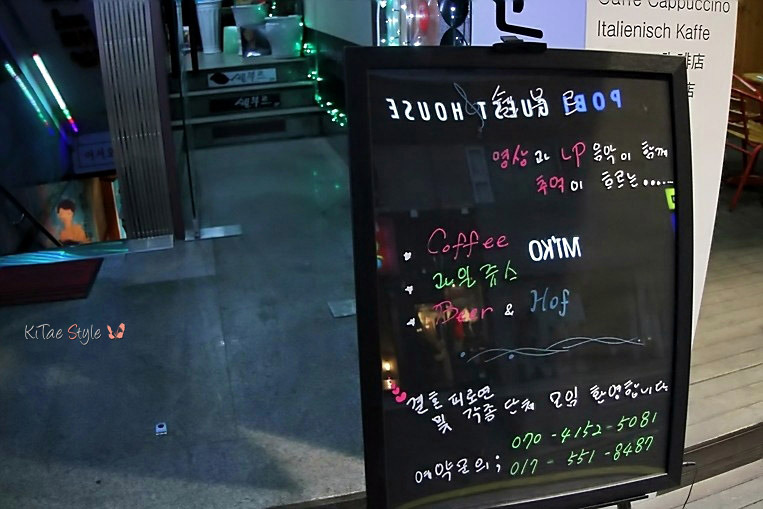 Caffe Cappuccino
Italienisch Kaffe
啡店
店
POBI GUEST HOUSE
영상과 LP 음악이 함께
추억이 흐르는.....
Coffee
MI'KO
과일 쥬스
Beer & Hof
결혼 피로연
및 각종 단체 모임 환영합니다
070-4152-5081
예약문의; 017-551-8487
세븐스
세븐스
KiTae Style